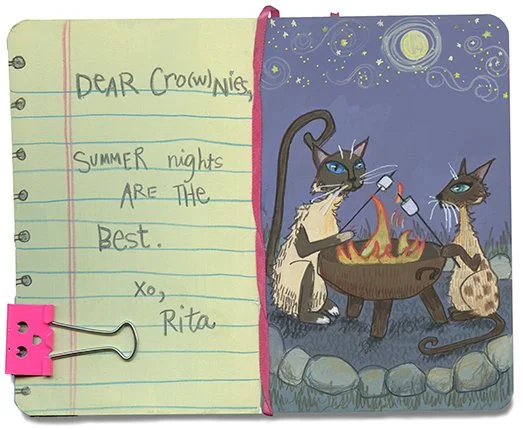 DEAR Cro(w)Nies,
SUMMER nights
ARE THE
Best.
xo,
Rita